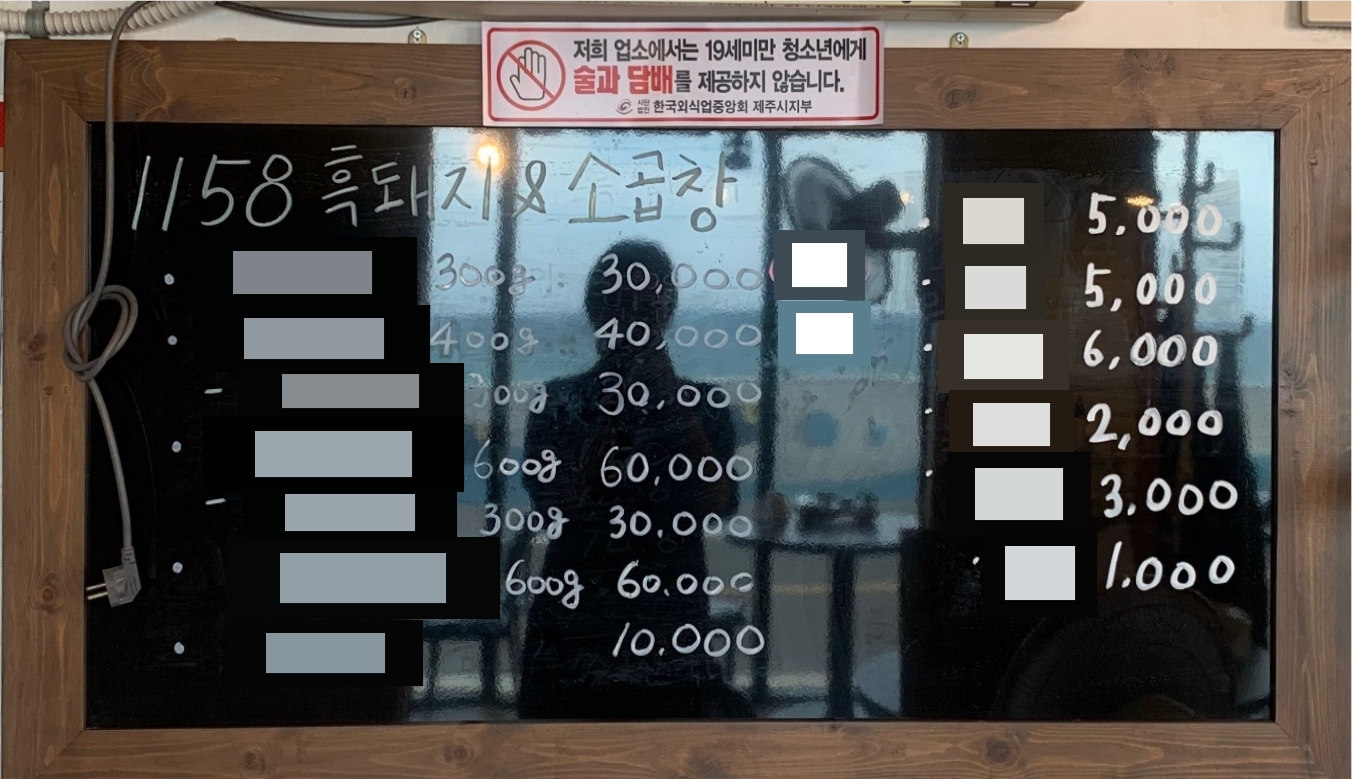 저희 업소에서는 19세미만 청소년에게
술과 담배를 제공하지 않습니다.
사단법인 한국외식업중앙회 제주시지부
1158 흑돼지 & 소곱창
300g 30,000
400g 40,000
300g 30,000
600g 60,000
300g 30.000
600g 60.000
10.000
5,000
5,000
6,000
2,000
3.000
1.000